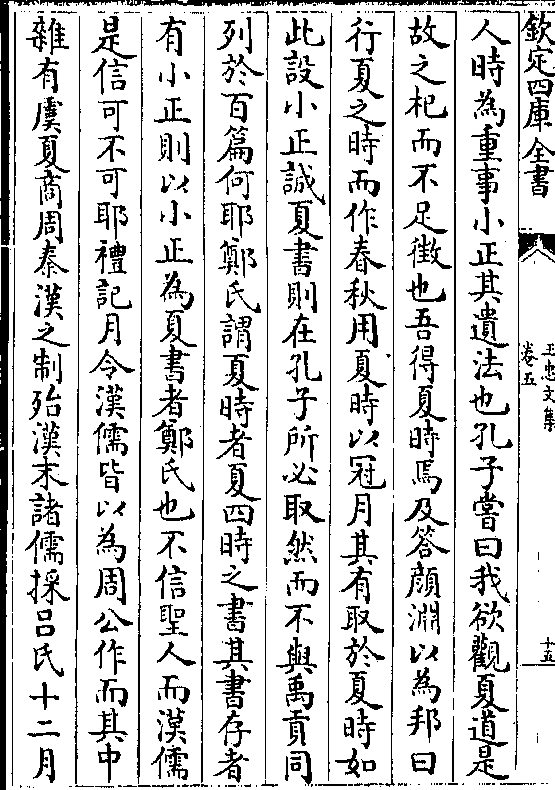 欽定四庫全書
王忠文集
卷五
十五
人時為重事小正其遺法也孔子嘗曰我欲觀夏道是
故之杞而不足徴也吾得夏時焉及答顔淵以為邦曰
行夏之時而作春秋用夏時以冠月其有取於夏時如
此設小正誠夏書則在孔子所必取然而不與禹貢同
列於百篇何耶鄭氏謂夏時者夏四時之書其書存者
有小正則以小正為夏書者鄭氏也不信聖人而漢儒
是信可不可耶禮記月令漢儒皆以為周公作而其中
雜有虞夏商周秦漢之制殆漢末諸儒採吕氏十二月